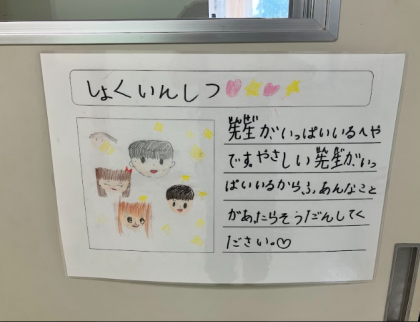 しょくいんしつ
先生がいっぱいいるへや
です。やさしい先生がいっ
ぱいいるからふあんなこと
があったらそうだんしてく
ださい。♡